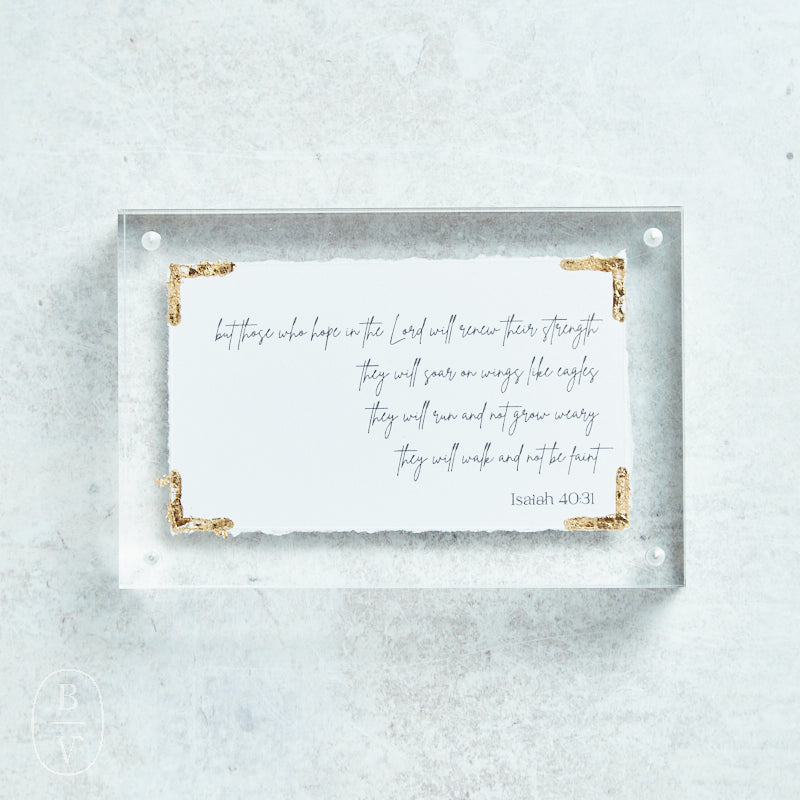 but those who hope in the Lord will renew their strength
they will soar on wings like eagles
they will run and not grow weary
they will walk and not be faint
Isaiah 40:31
B
V